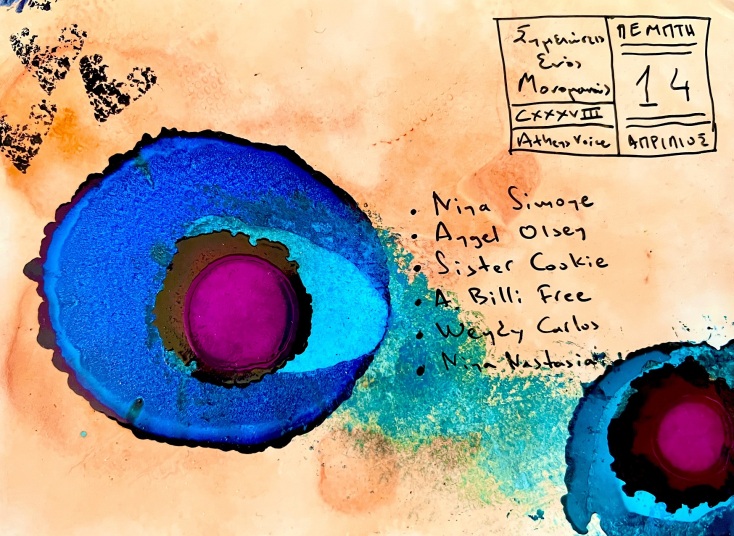 Σημειώσεις
Ενός
Μονομανούς
CXXXVIII
Athens Voice
ΠΕΜΠΤΗ
14
ΑΠΡΙΛΙΟΣ
• Nina Simone
• Angel Olsen
• Sister Cookie
• A. Billi Free
• Wendy Carlos
• Nina Nastasia